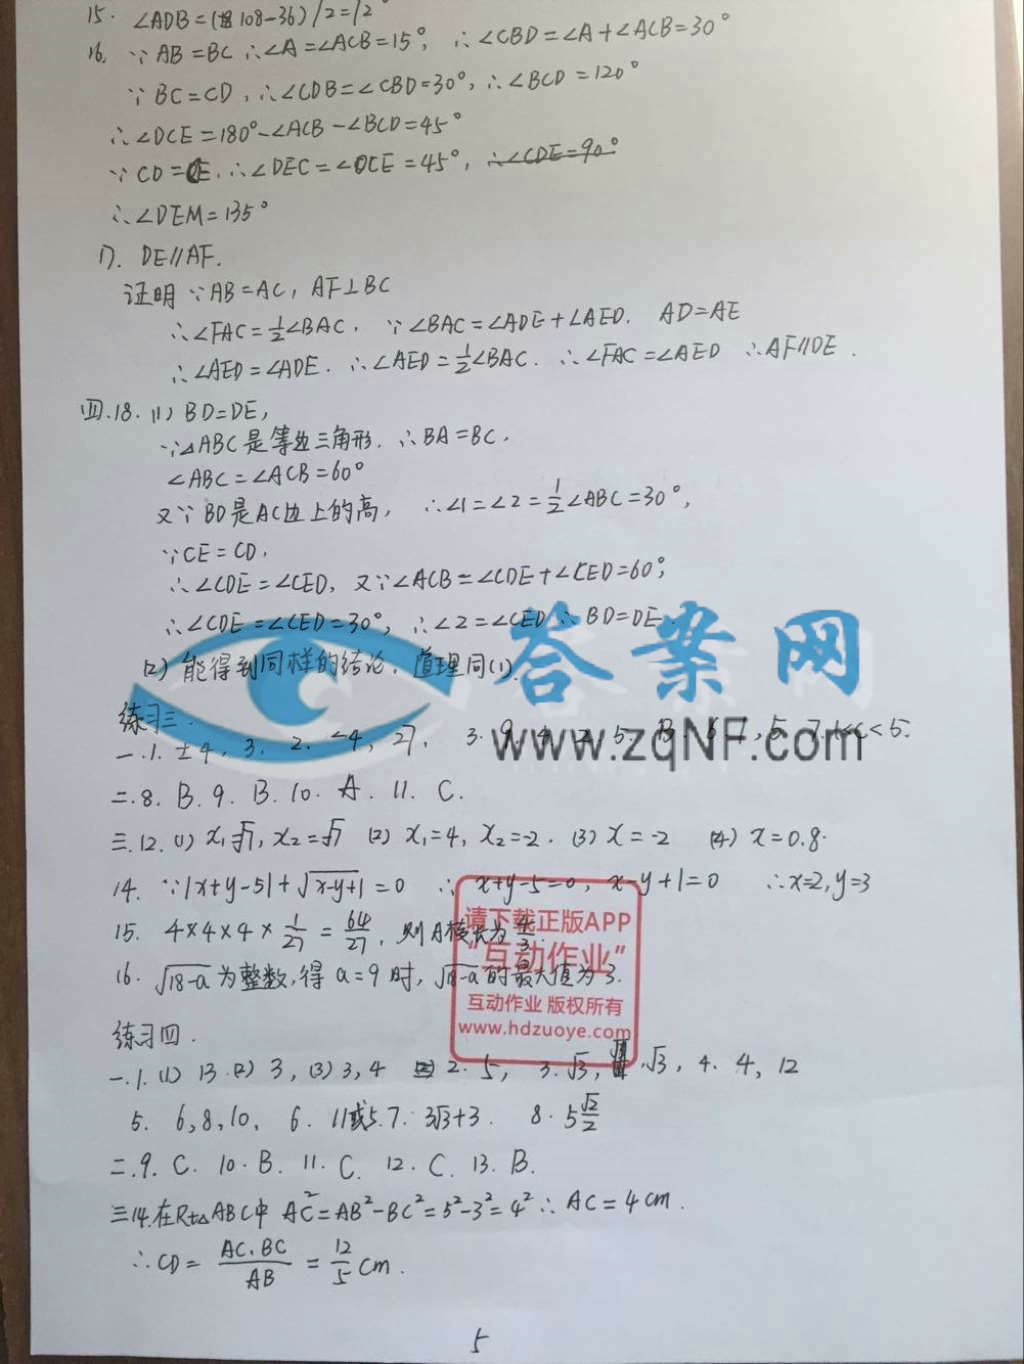 15. ∠ADB=(108-36)/2=12°
16. ∵AB=BC ∴∠A=∠ACB=15°, ∴∠CBD=∠A+∠ACB=30°
∵BC=CD, ∴∠CDB=∠CBD=30°, ∴∠BCD=120°
∴∠DCE=180°-∠ACB-∠BCD=45°
∵CD=CE, ∴∠DEC=∠DCE=45°, ∴∠CDE=90°
∴∠DEM=135°
17. DE∥AF.
证明∵AB=AC, AF⊥BC
∴∠FAC=1/2∠BAC. ∵∠BAC=∠ADE+∠AED. AD=AE
∴∠AED=∠ADE. ∴∠AED=1/2∠BAC. ∴∠FAC=∠AED ∴AF∥DE.
四.18.(1) BD=DE,
∵△ABC是等边三角形. ∴BA=BC.
∠ABC=∠ACB=60°
又∵BD是AC边上的高, ∴∠1=∠2=1/2∠ABC=30°,
∵CE=CD,
∴∠CDE=∠CED, 又∵∠ACB=∠CDE+∠CED=60°,
∴∠CDE=∠CED=30°, ∴∠2=∠CED ∴BD=DE
(2) 能得到同样的结论, 道理同(1).
答案网
www.zqNF.com
练习三.
一.1. ±4, 3. 2. -4, 27. 3. 9 5. 7. 1<c<5.
二.8. B. 9. B. 10. A. 11. C.
三.12.(1) x₁=√7, x₂=√7 (2) x₁=4, x₂=-2. (3) x=-2 (4) x=0.8.
14. ∵|x+y-5|+√x-y+1=0 ∴x+y-5=0, x-y+1=0 ∴x=2, y=3
15. 4×4×4×1/27=64/27, 则A棱长为4/3.
16. √18-a为整数, 得a=9时, √18-a的最大值为3.
请下载正版APP
“互动作业”
互动作业 版权所有
www.hdzuoye.com
练习四.
一.1.(1) 13.(2) 3, (3) 3, 4 2. 5, 3. √3, √3, 4. 4, 12
5. 6, 8, 10, 6. 11或5. 7. 3√3+3. 8. 5√2/2
二.9. C. 10. B. 11. C. 12. C. 13. B.
三14.在Rt△ABC中 AC²=AB²-BC²=5²-3²=4² ∴AC=4cm.
∴CD=AC.BC/AB=12/5cm.
5